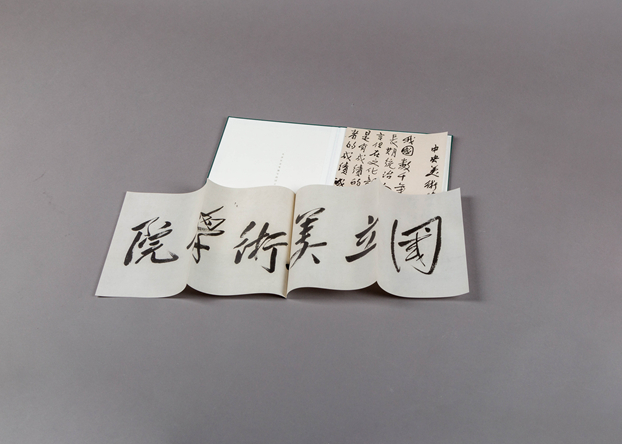 中央美術
我國數千年
長期統治人
但在文化
是有成績的
者的成績
國立美術學院